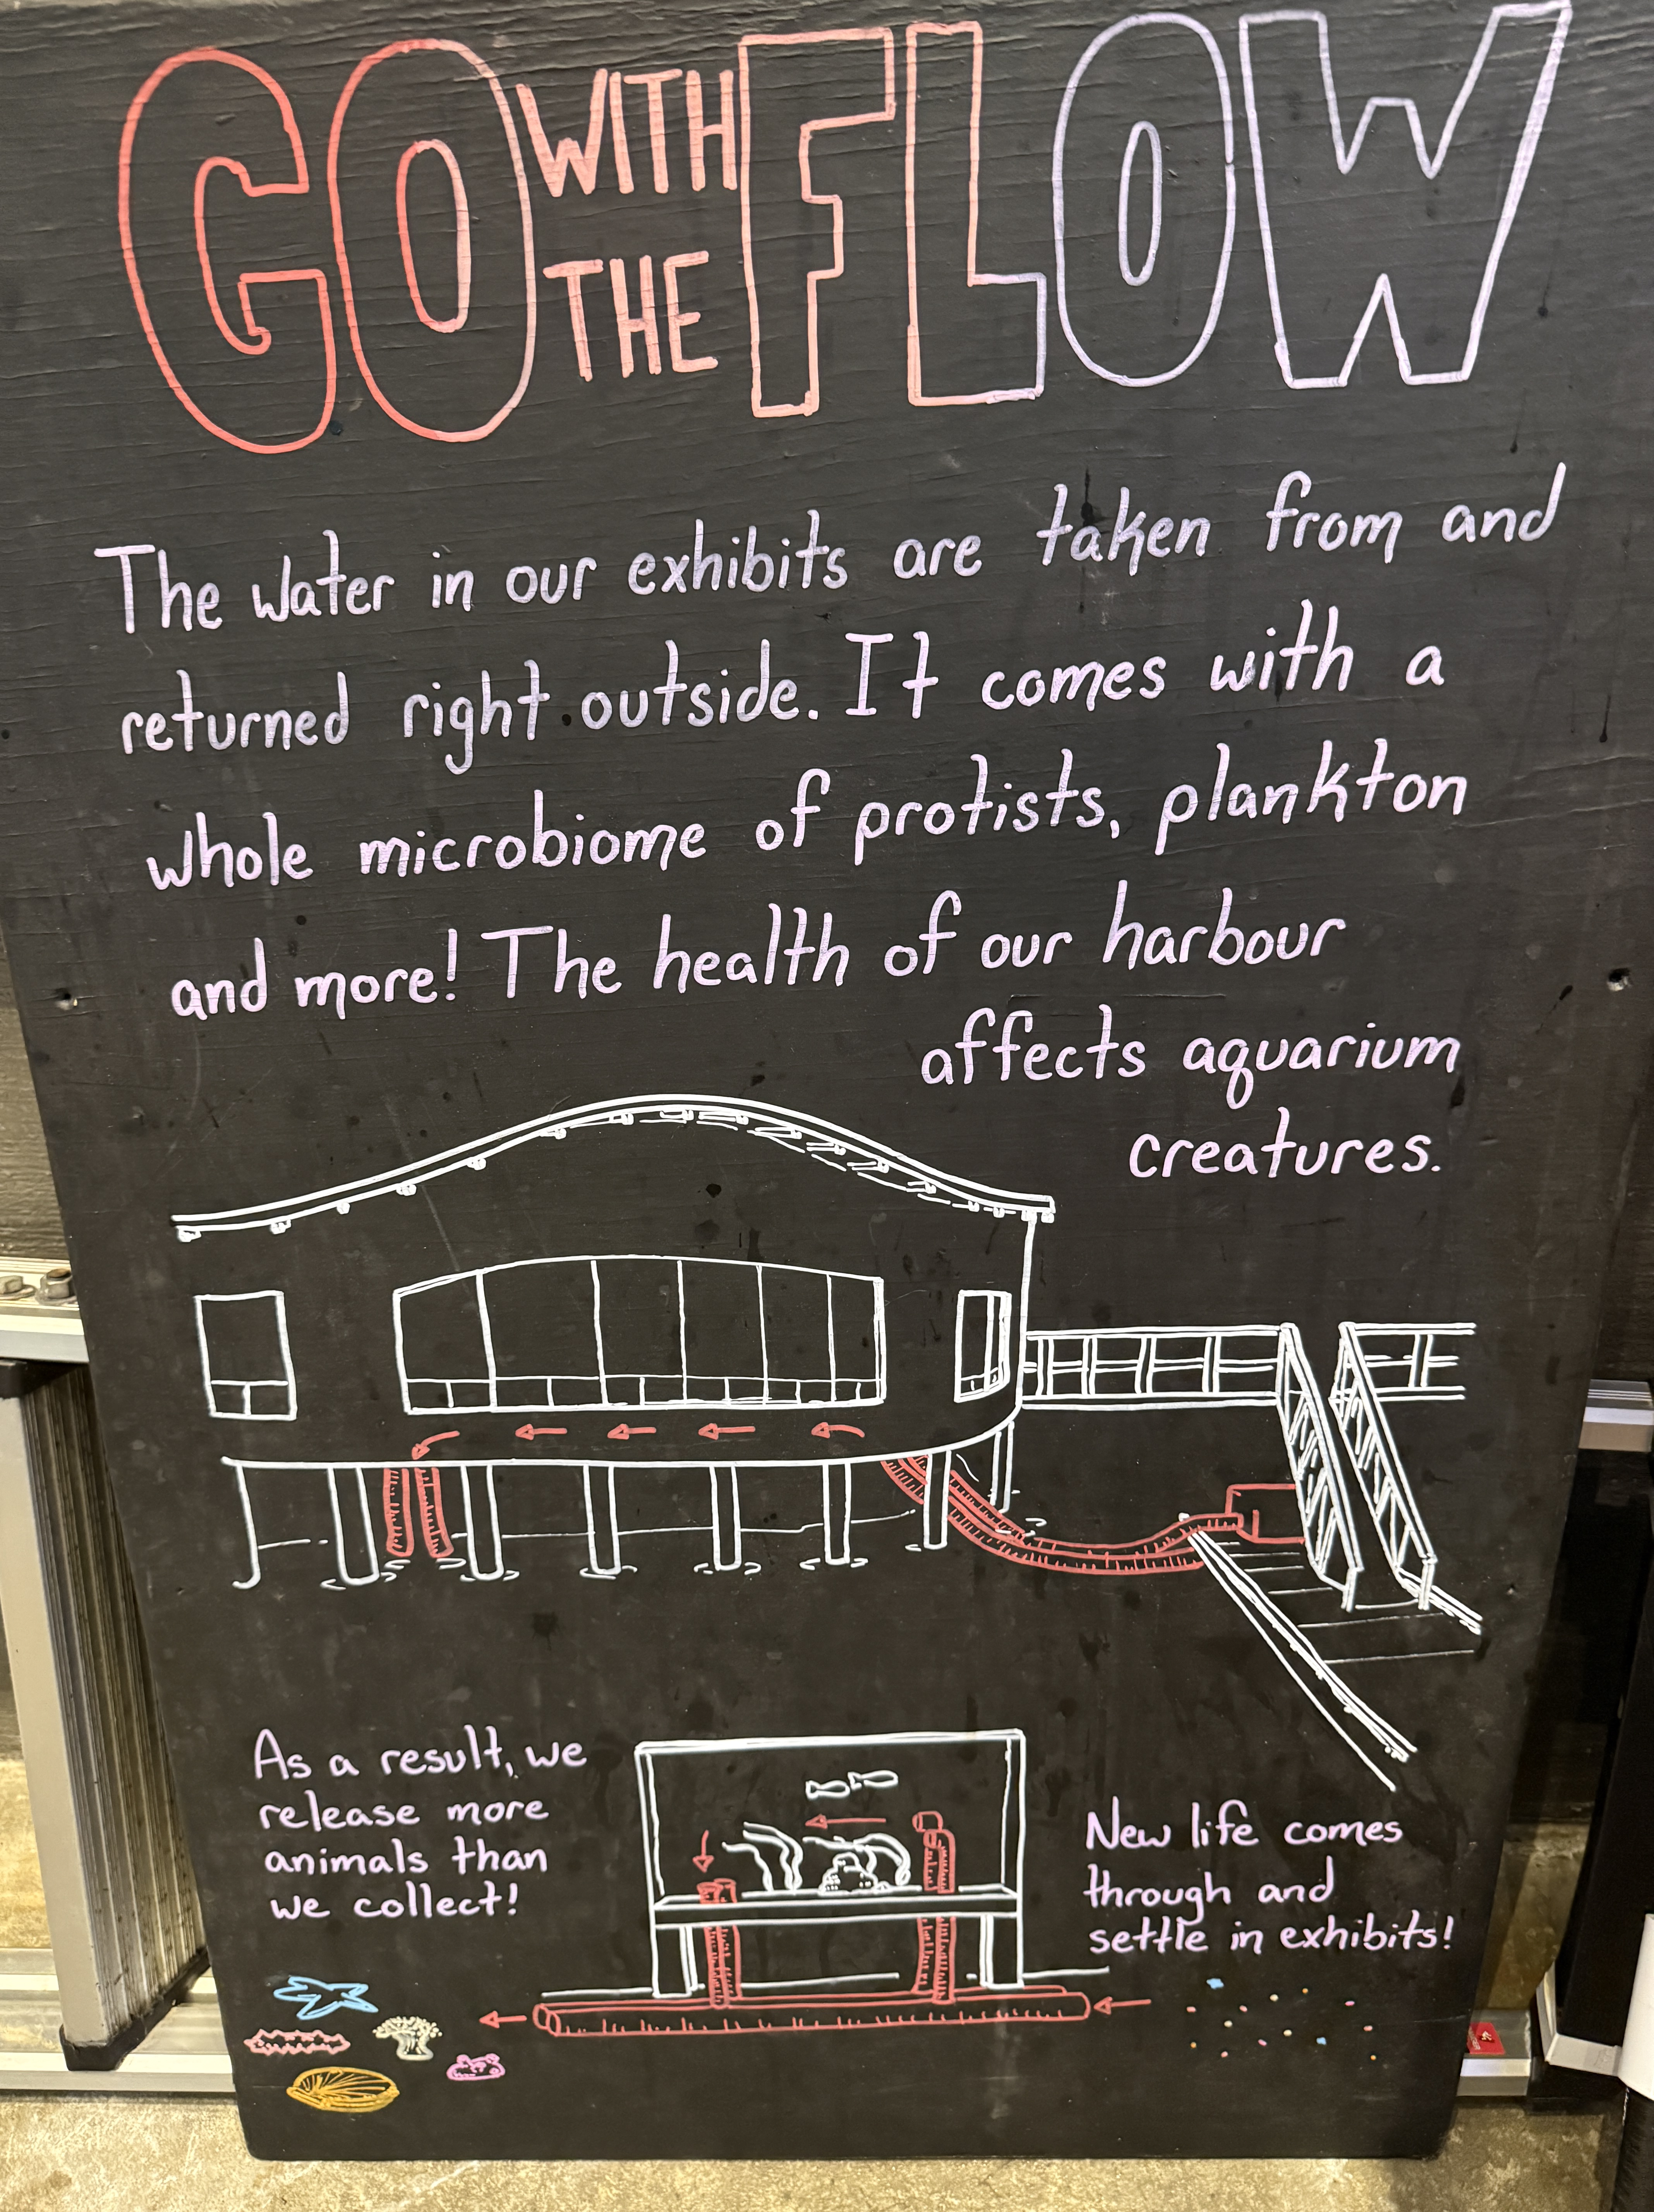 GO WITH THE FLOW
The water in our exhibits are taken from and
returned right outside. It comes with a
whole microbiome of protists, plankton
and more! The health of our harbour
affects aquarium
creatures.
As a result, we
release more
animals than
we collect!
New life comes
through and
settle in exhibits!